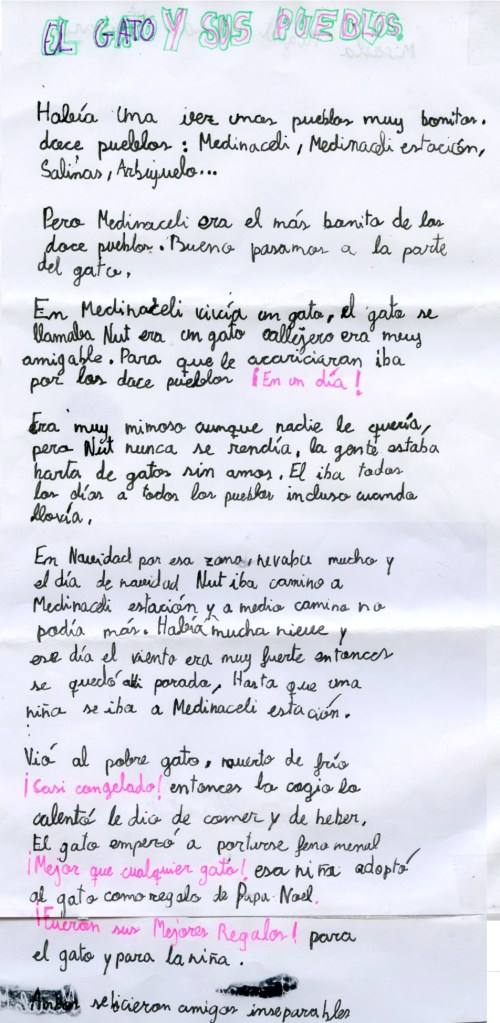 EL GATO Y SUS PUEBLOS.
Había una vez unos pueblos muy bonitos.
doce pueblos : Medinaceli, Medinaceli estación,
Salinas, Arbujuelo...
Pero Medinaceli era el más bonito de los
doce pueblos. Bueno pasamos a la parte
del gato.
En Medinaceli vivía un gato, el gato se
llamaba Nut era un gato callejero era muy
amigable. Para que le acariciaran iba
por los doce pueblos ¡En un día!
Era muy mimoso aunque nadie le quería,
pero Nut nunca se rendía, la gente estaba
harta de gatos sin amos. El iba todos
los días a todos los pueblos incluso cuando
llovía.
En Navidad por esa zona, nevaba mucho y
el día de navidad Nut iba camino a
Medinaceli estación y a medio camino no
podía más. Había mucha nieve y
ese día el viento era muy fuerte entonces
se quedó alli parado, Hasta que una
niña se iba a Medinaceli estación.
Vió al pobre gato, muerto de frío
¡Casi congelado! entonces lo cogio lo
calentó le dio de comer y de beber,
El gato empezó a portarse fenomenal
¡Mejor que cualquier gato! esa niña adoptó
al gato como regalo de Papa Noel.
¡Fueron sus Mejores Regalos! para
el gato y para la niña.
se hicieron amigos inseparables